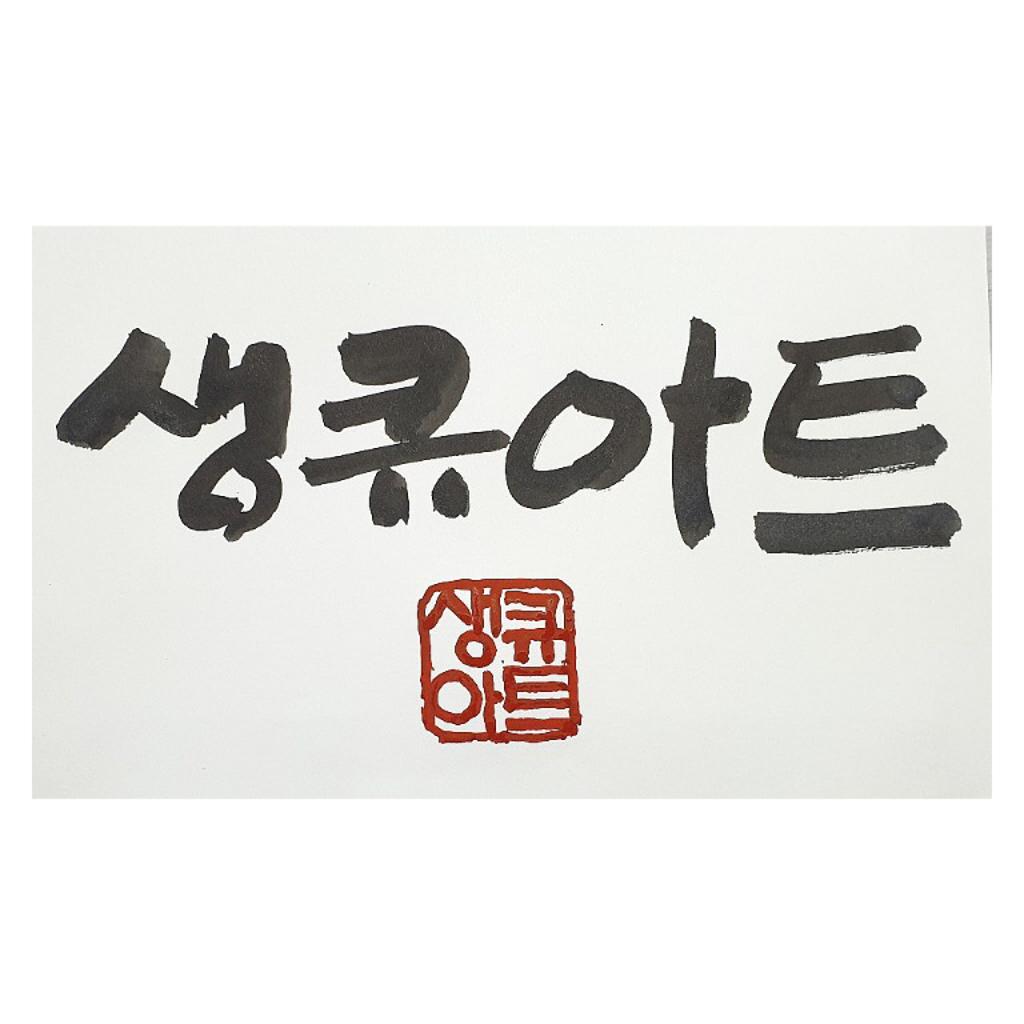 생큐아트
생큐
아트